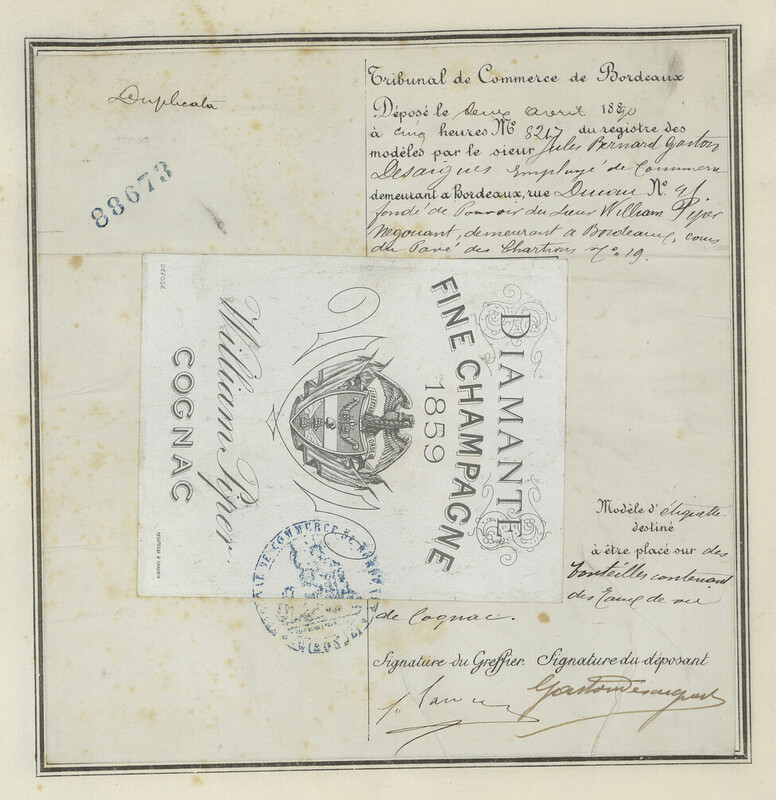 Duplicata
88673
Tribunal de Commerce de Bordeaux
Déposé le deux avril 1890
à cinq heures No 8217 du registre des
modèles par le sieur Jules Bernard Gaston
Desaigues Employé de Commerce
demeurant a Bordeaux, rue Ducau No. 91
fondé de Pouvoir du Sieur William Piper
Négociant, demeurant à Bordeaux, cours
du Pavé des Chartrons no. 19.
DÉPOSÉ
DIAMANTE
FINE CHAMPAGNE
1859
William Piper
COGNAC
TRIBUNAL DE COMMERCE DE BORDEAUX
(GIRONDE)
Modèle d'étiquette
destiné
à être placé sur des
bouteilles contenant
des Eaux de vie
de Cognac.
Signature du Greffier. Signature du déposant
Gaston Desaigues